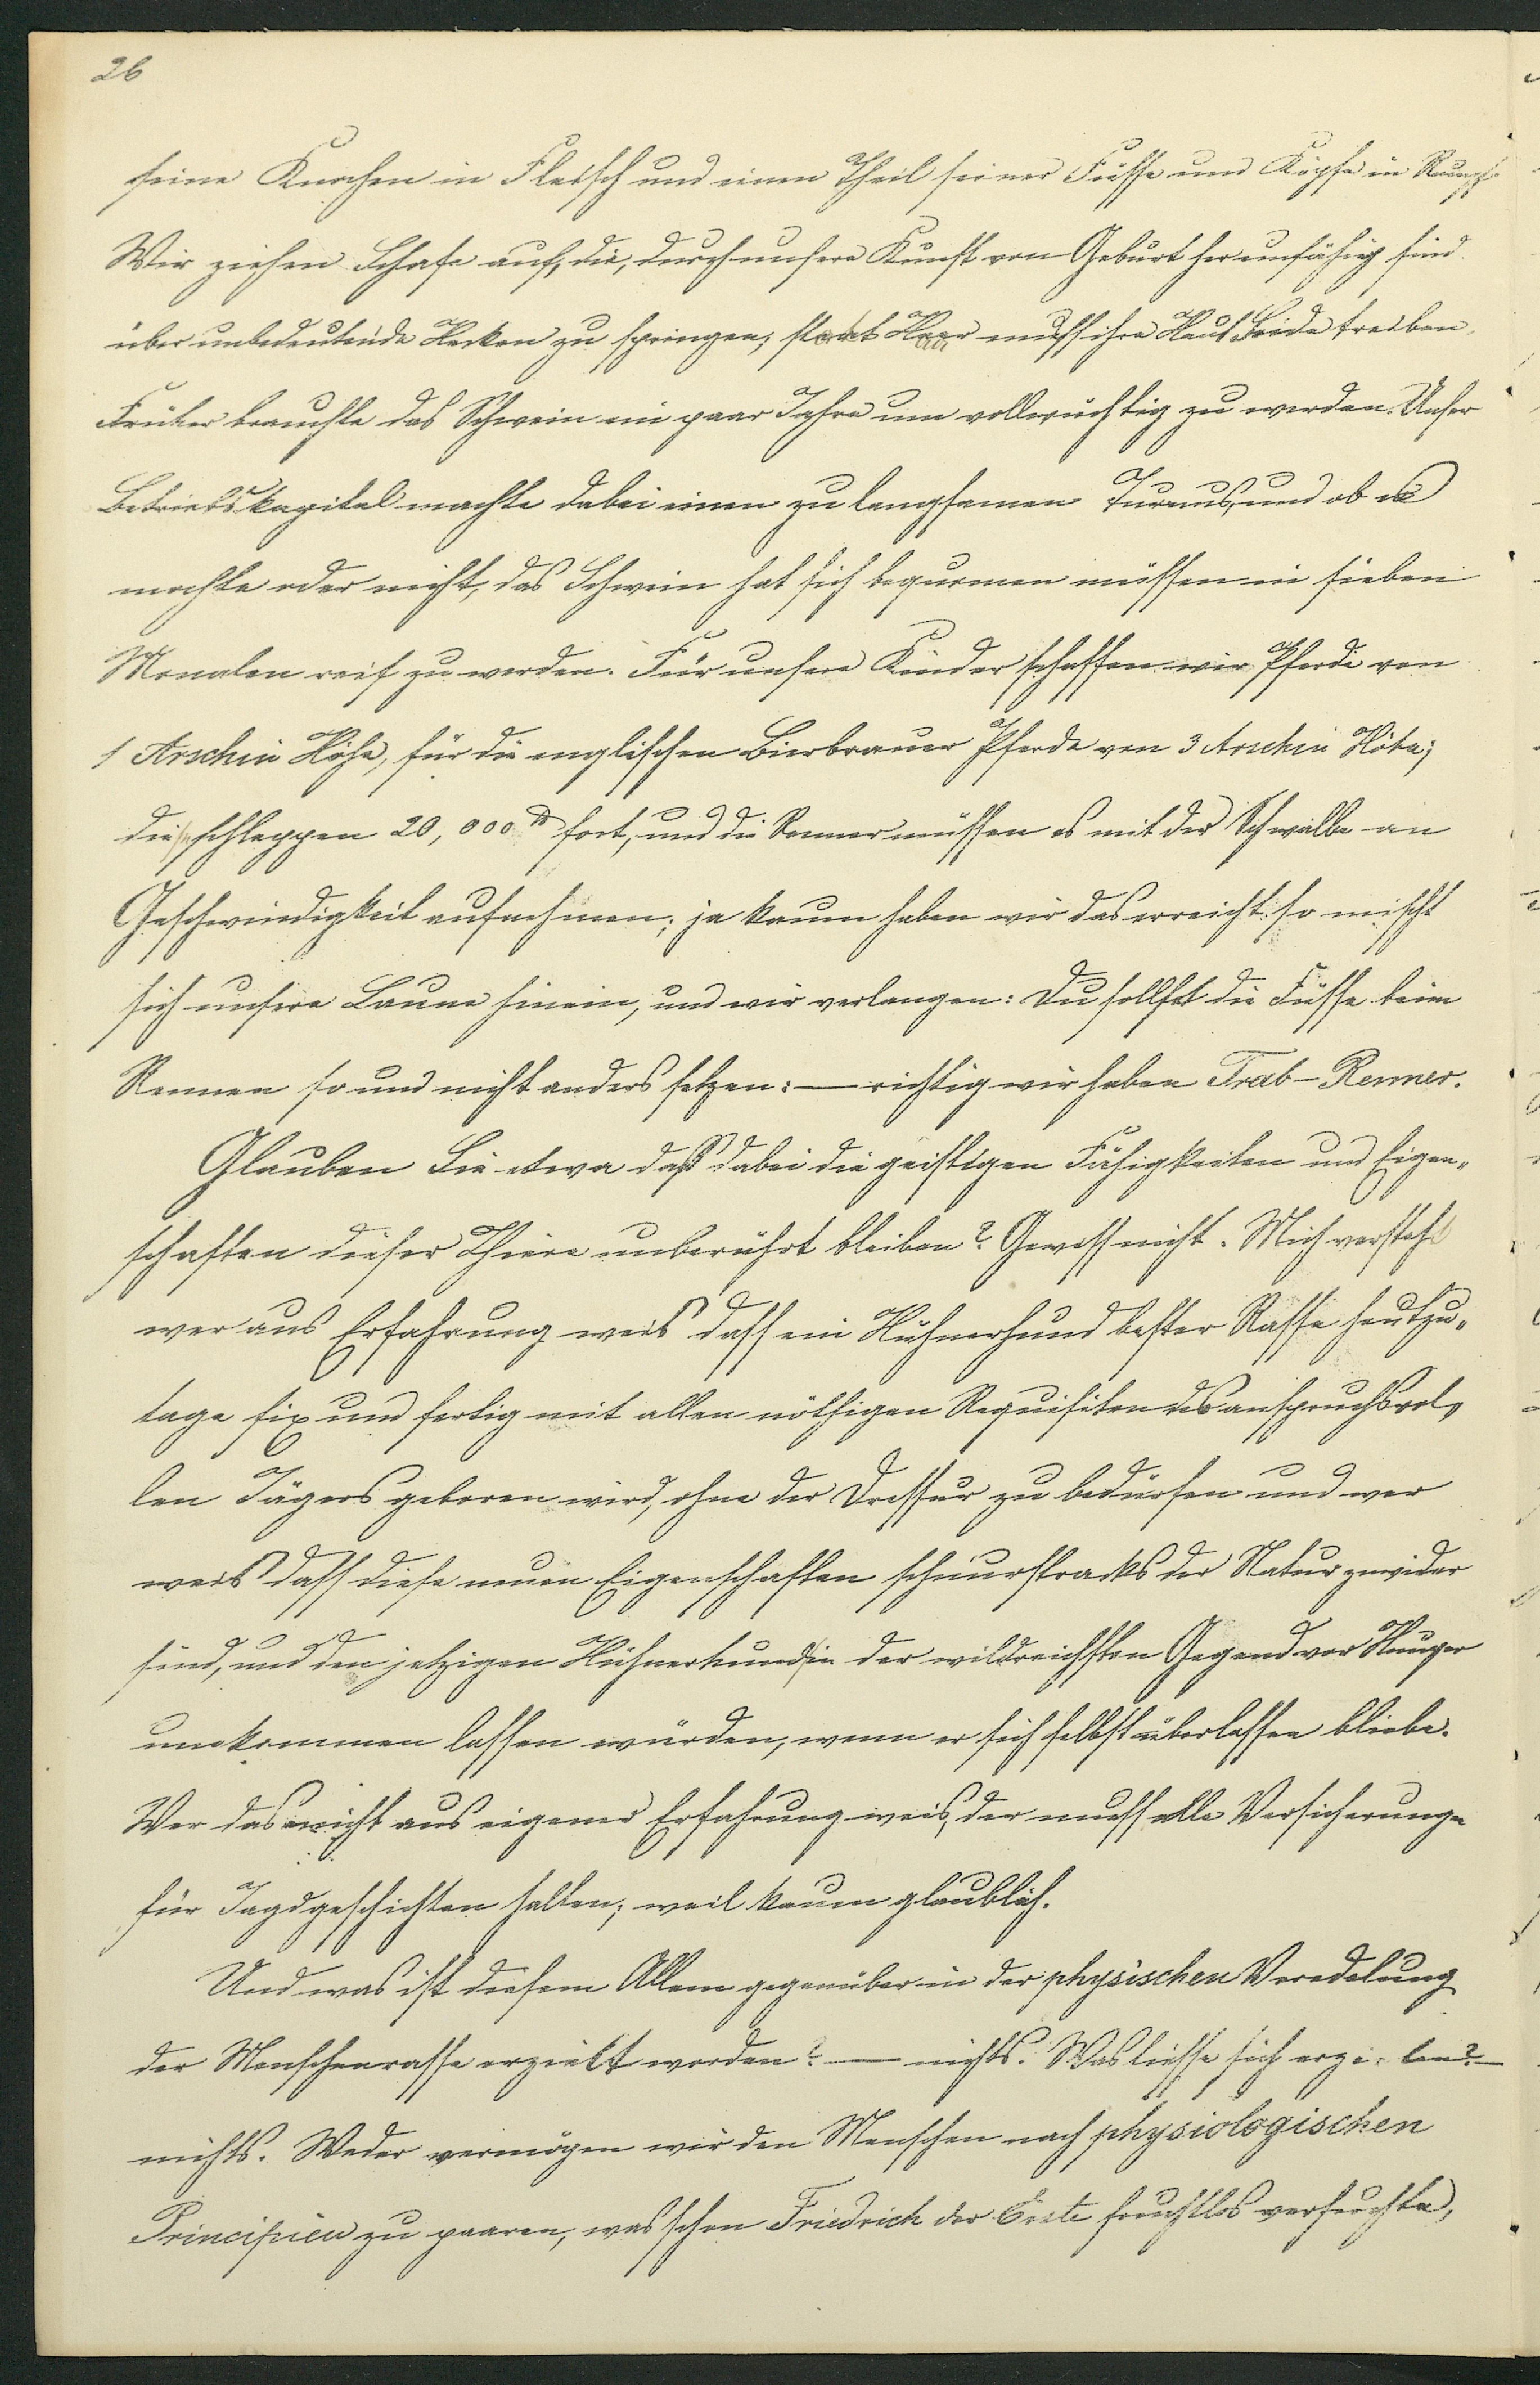 26
seine Knochen in Fleisch und einen Theil seiner Füsse und Köpfe in Rumpf.
Wir ziehen Schafe auf, die, durch unsere Kunst von Geburt her unfähig sind
über unbedeutende Hecken zu springen; statt Haar muss ihre Haut Seide treiben.
Früher brauchte das Schwein ein paar Jahre um vollwüchtig zu werden. Unser
Betriebskapital machte dabei einen zu langsamen Turnus, und ob es
mochte oder nicht, das Schwein hat sich bequemen müssen in sieben
Monaten reif zu werden. Für unsere Kinder schaffen wir Pferde von
1 Arschin Höhe, für die englischen Bierbrauer Pferde von 3 Arschin Höhe;
diese schleppen 20,000 ℔ fort, und die Renner müssen es mit der Schwalbe an
Geschwindigkeit aufnehmen; ja kaum haben wir das erreicht so mischt
sich unsere Laune hinein, und wir verlangen: Du sollst die Füsse beim
Rennen so und nicht anders setzen: — richtig wir haben Trab-Renner.
Glauben Sie etwa daß dabei die geistigen Fähigkeiten und Eigen„
schaften dieser Thiere unberührt bleiben? Gewiss nicht. Mich versteht
wer aus Erfahrung weis dass ein Hühnerhund bester Rasse heutzu„
tage fix und fertig mit allen nöthigen Requisiten des anspruchsvol„
len Jägers geboren wird, ohne der Dressur zu bedürfen und wer
weis dass diese neuen Eigenschaften schnurstracks der Natur zuwider
sind, und den jetzigen Hühnerhund in der wildreichsten Gegend vor Hunger
umkommen lassen würden, wenn er sich selbst überlassen bliebe.
Wer das nicht aus eigener Erfahrung weis, der muss alle Versicherungen
für Jagdgeschichten halten; weil kaum glaublich.
Und was ist diesem Allem gegenüber in der physischen Veredelung
der Menschenrasse erzielt worden? — nichts. Was liesse sich erzielen? —
nichts. Weder vermögen wir den Menschen nach physiologischen
Principien zu paaren, was schon Friedrich der Erste fruchtlos versuchte,